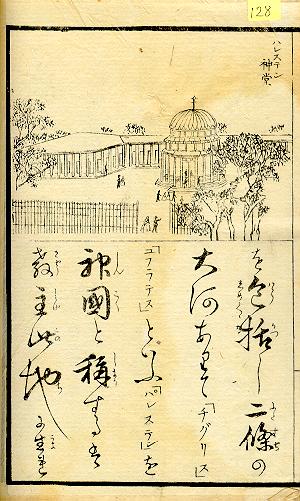 128
ハレステン
神堂
を包括し二條の
大河ありて「チグリス」
「ユフラテス」といふ「パレステン」を
神國と稱するは
教主此地に生れ